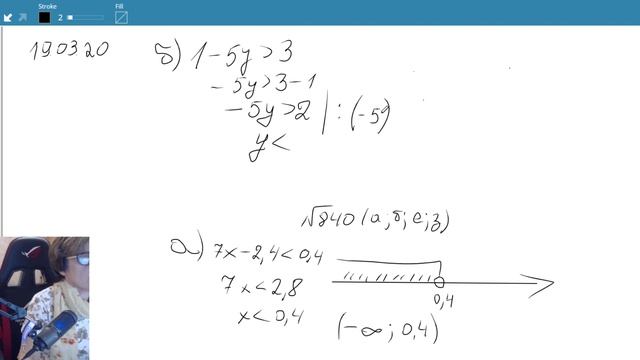 Stroke
Fill
2
19.03.20
б) 1-5y>3
-5y>3-1
-5y>2 | : (-5)
y<
№840 (а; б; е; з)
а) 7x-2,4<0,4
7x<2,8
x<0,4
0,4
(-∞; 0,4)